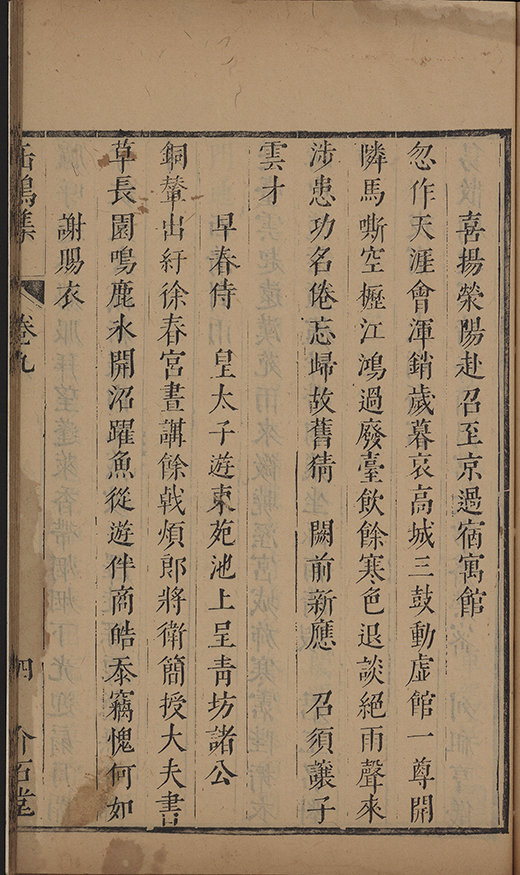 喜揚榮陽赴召至京過宿寓館
忽作天涯會渾銷歲暮哀高城三鼓動虛館一尊開
隣馬嘶空櫪江鴻過廢臺飲餘寒色退談絕雨聲來
涉患功名倦忘歸故舊猜闕前新應召須讓子
雲才
早春侍皇太子遊東苑池上呈青坊諸公
銅輦出紆徐春宮晝講餘戟煩郎將衛簡授大夫書
草長園鳴鹿氷開沼躍魚從遊伴商皓忝竊愧何如
謝賜衣
缶鳴集 卷九 四 介石堂